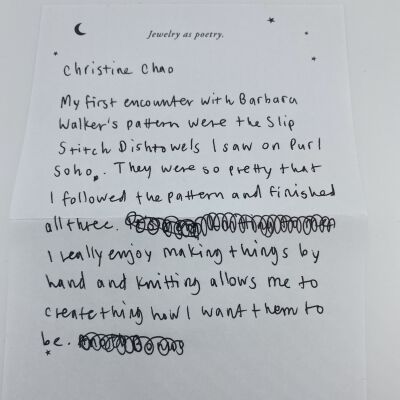 Jewelry as poetry.
Christine Chao
My first encounter with Barbara
Walker's pattern were the Slip
Stitch Dishtowels I saw on Purl
Soho. They were so pretty that
I followed the pattern and finished
all three.
I really enjoy making things by
hand and knitting allows me to
create thing how I want them to
be.